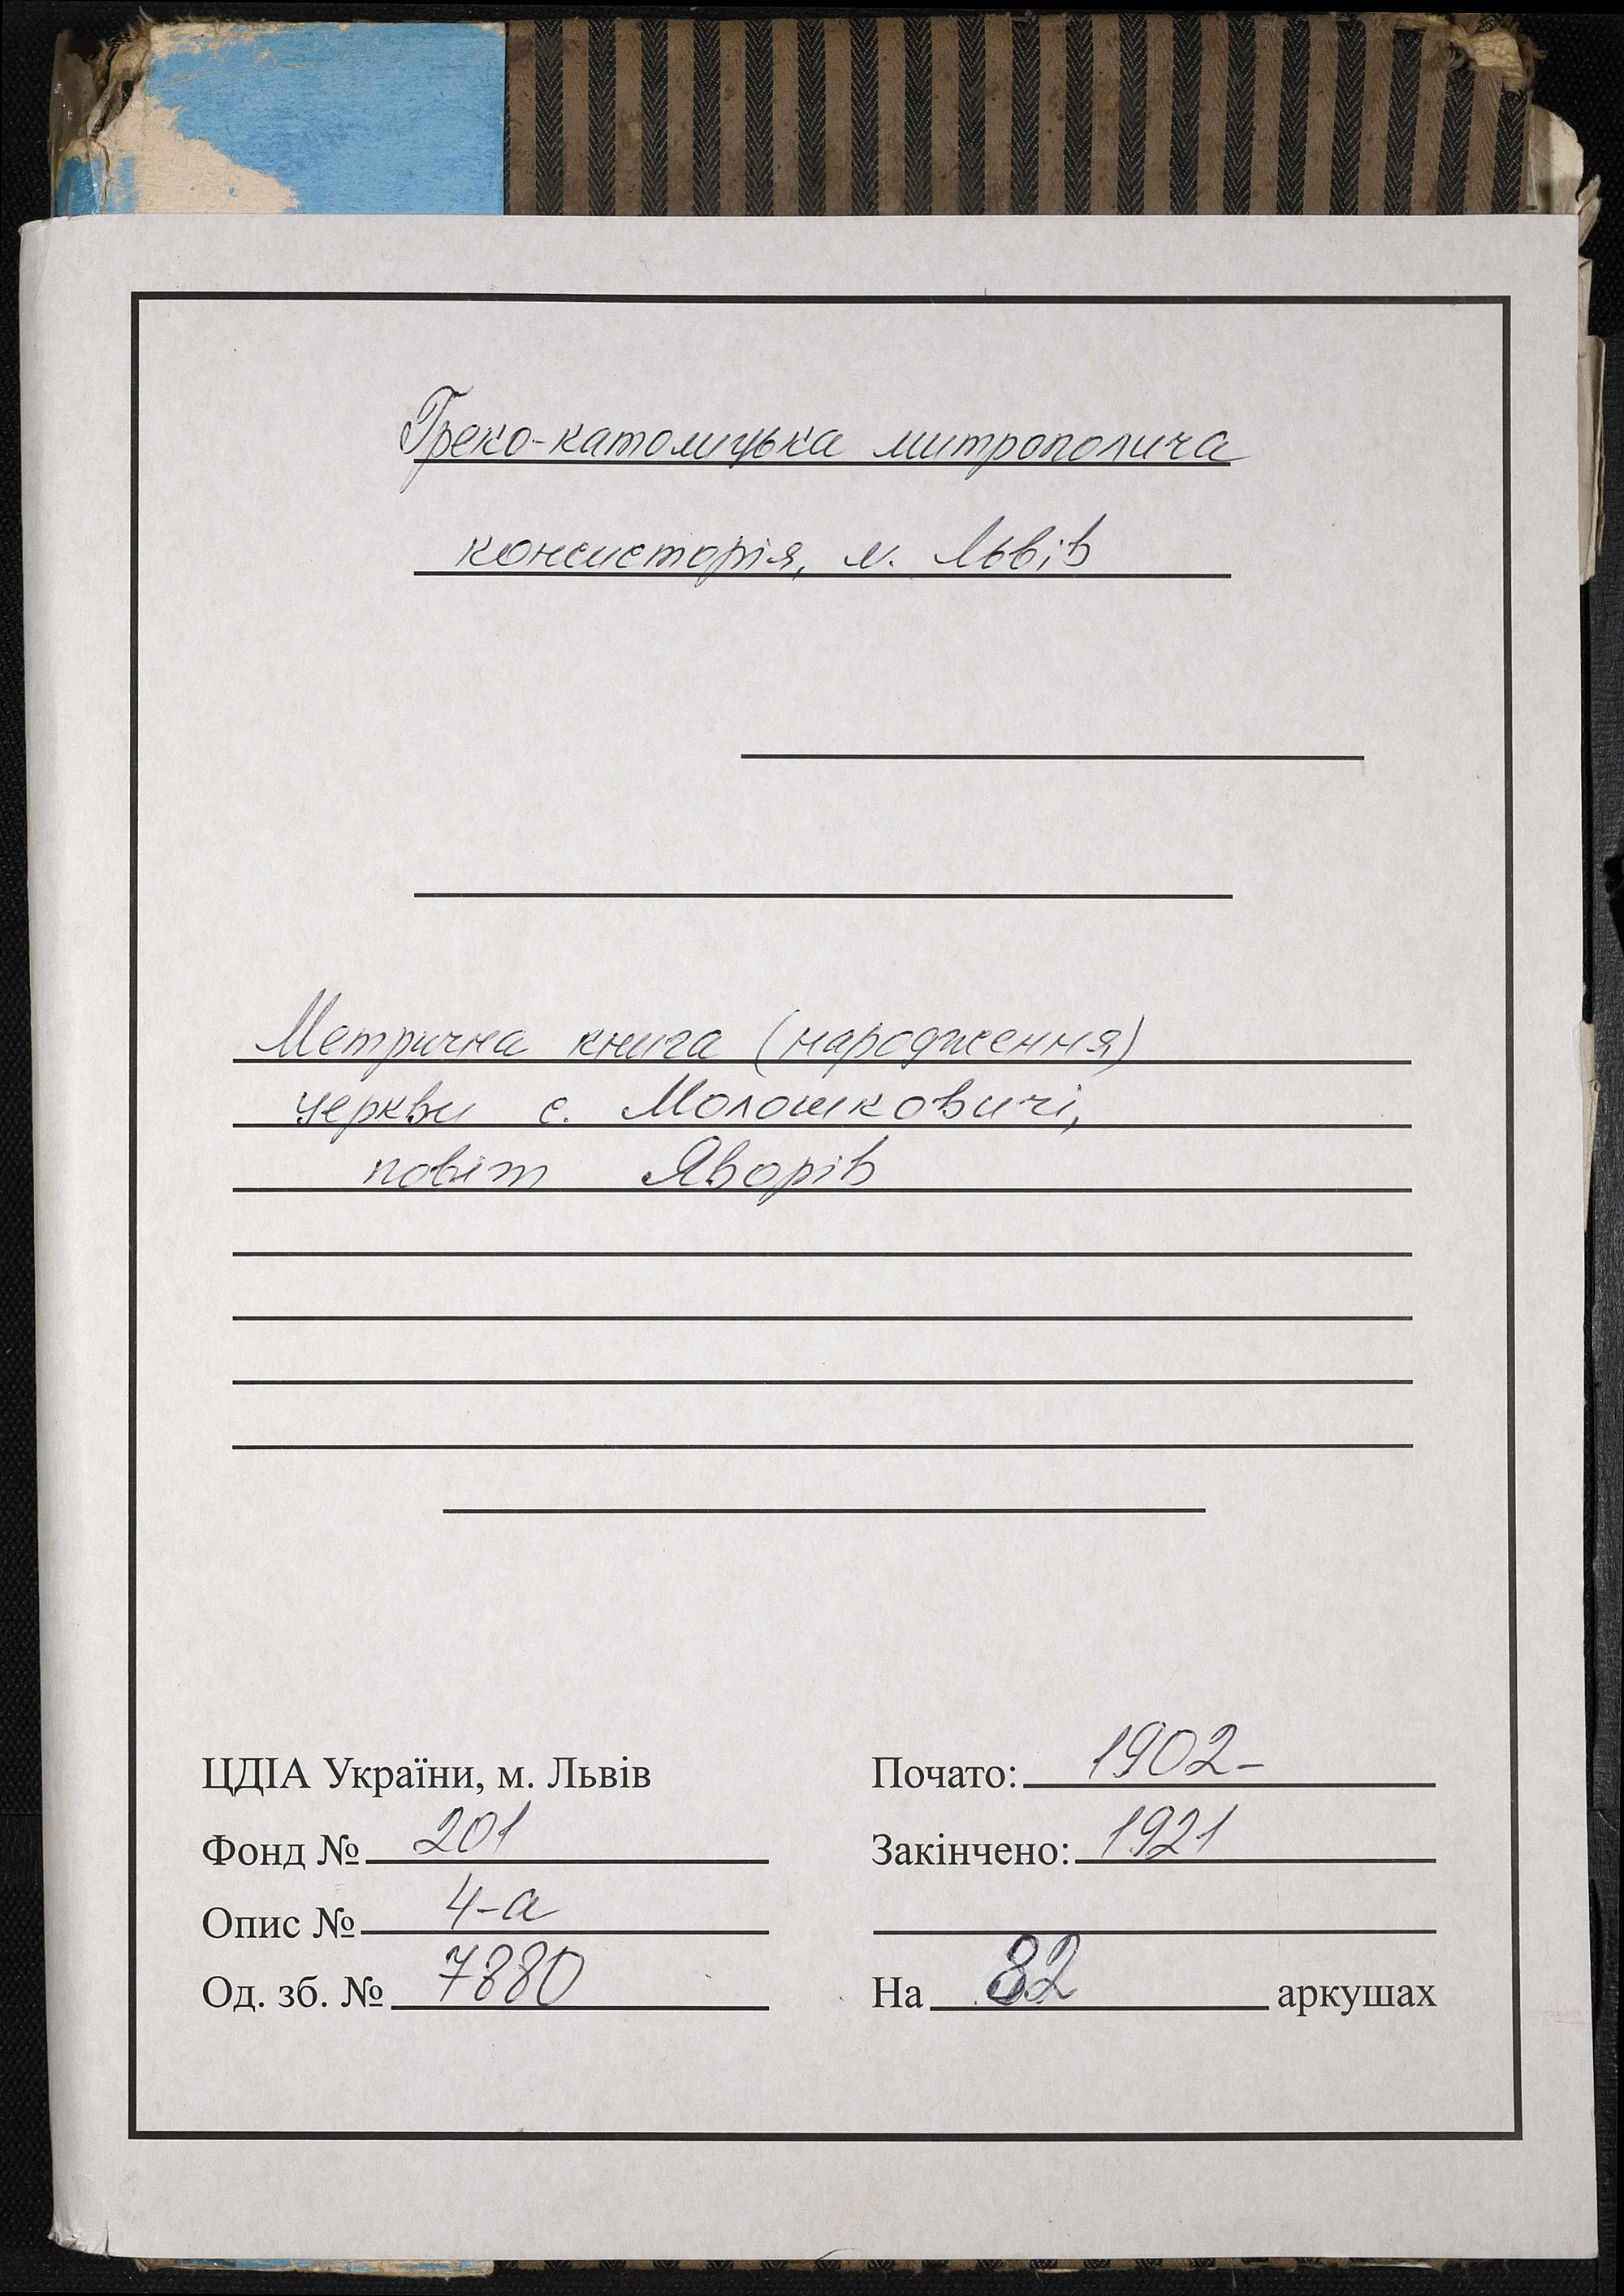 Греко-католицька митрополича
консисторія, м. Львів
Метрична книга (народження)
церкви с. Молошковичі,
повіт Яворів
ЦДІА України, м. Львів
Фонд № 201
Опис № 4-а
Од. зб. № 7880
Почато: 1902-
Закінчено: 1921
На 82 аркушах